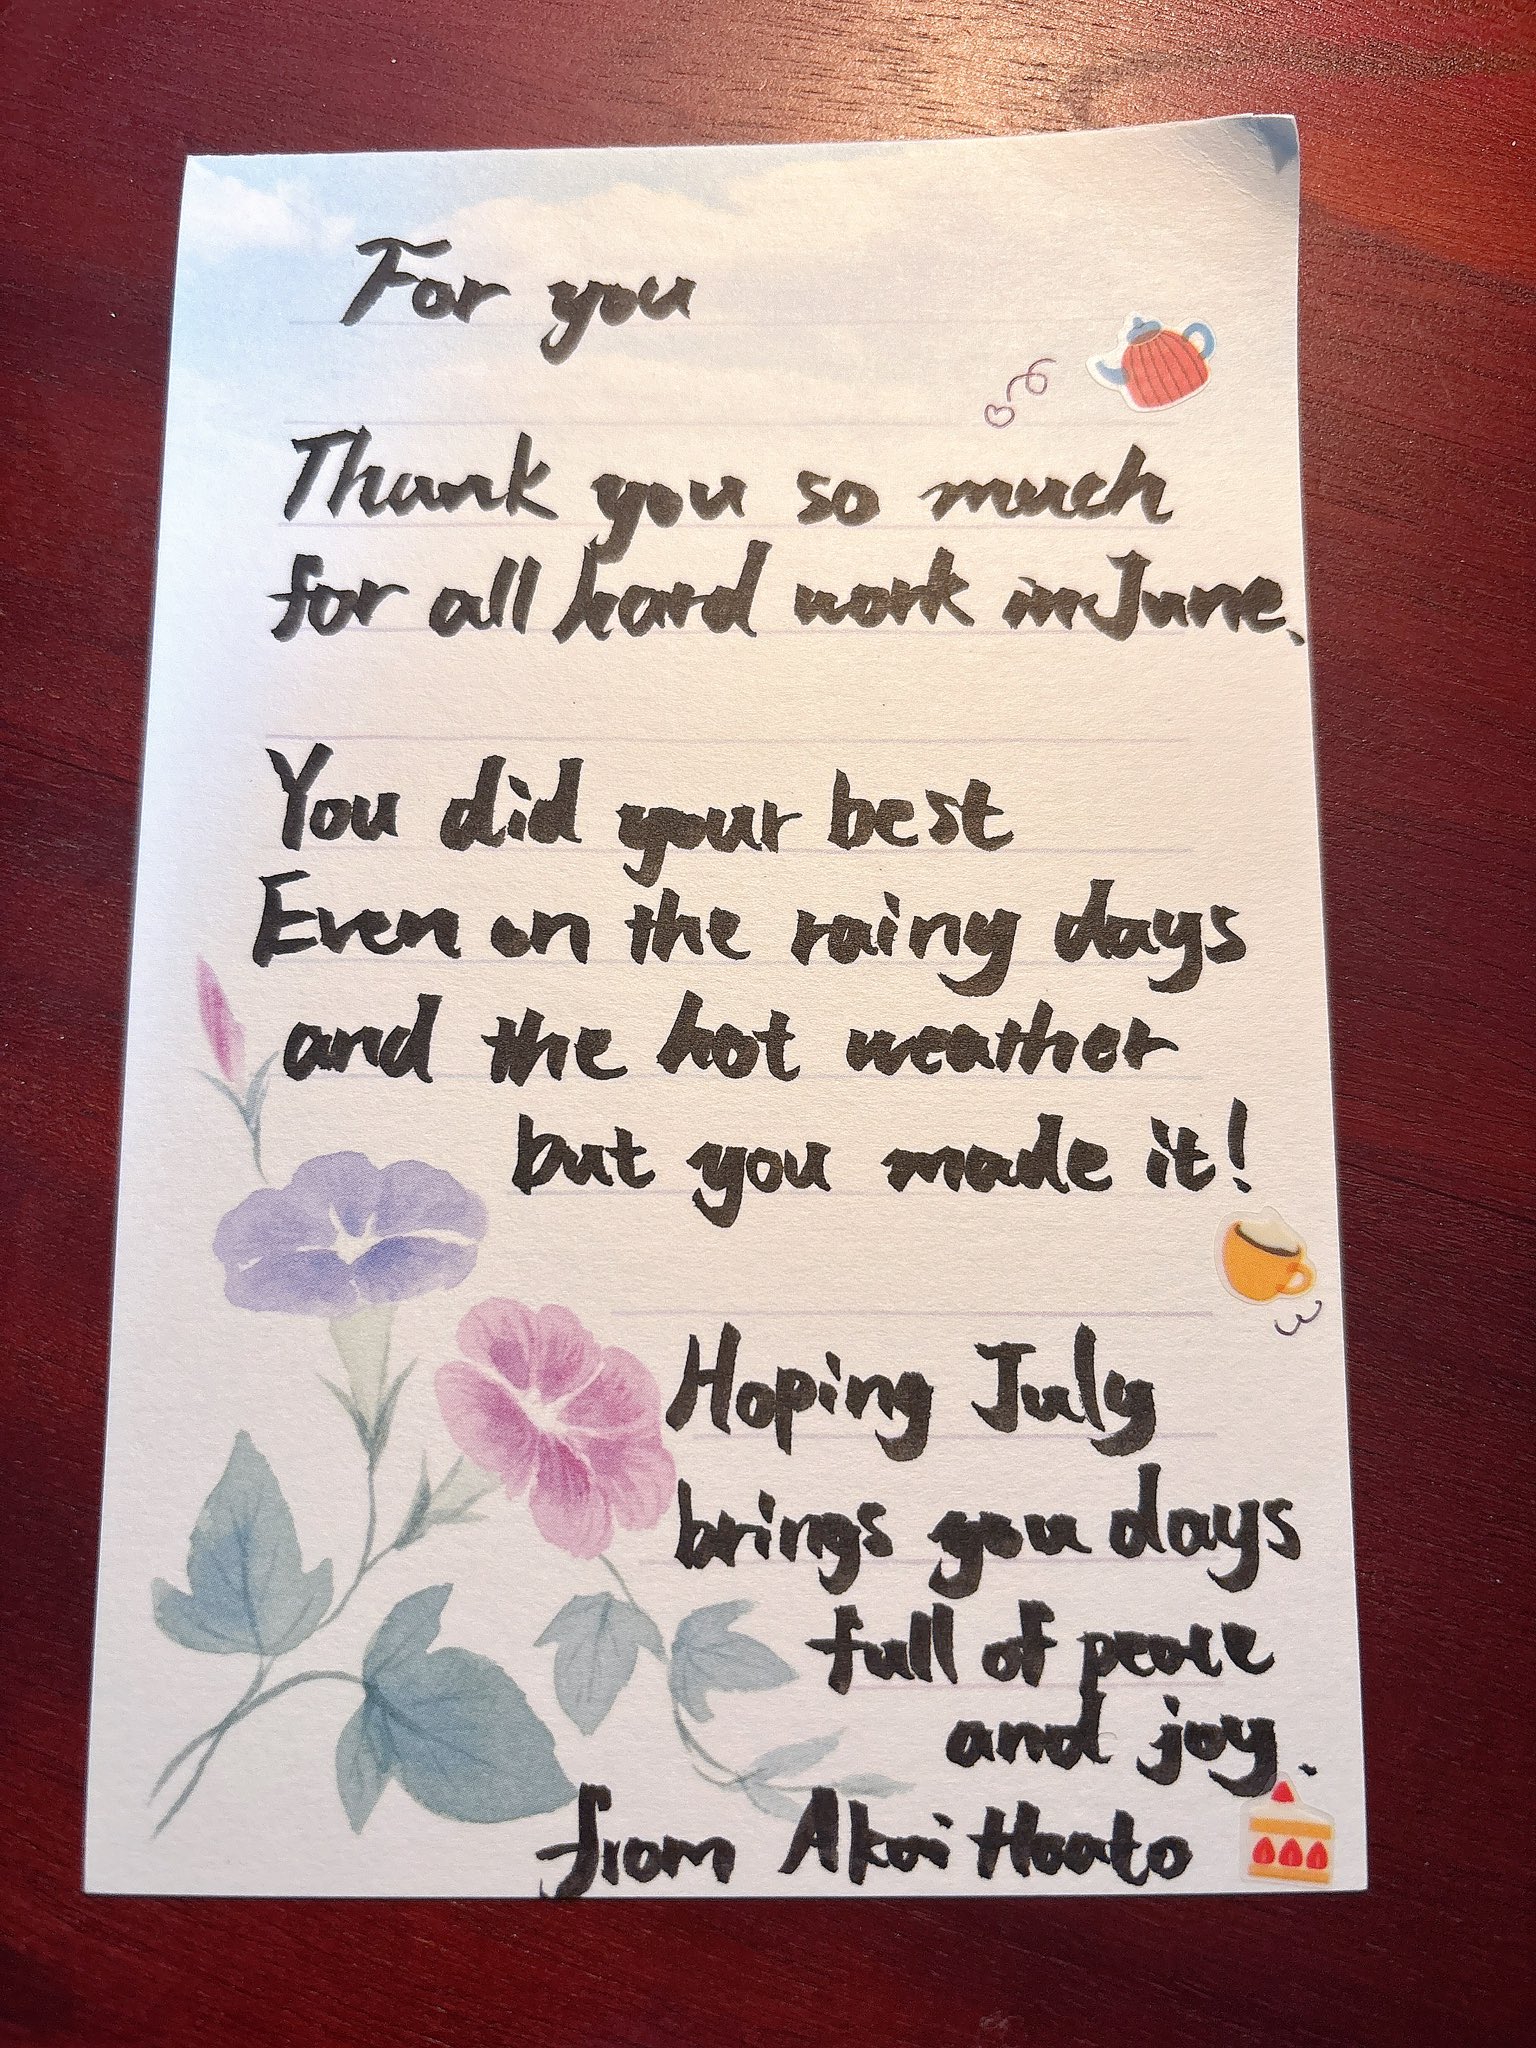 For you
Thank you so much
for all hard work in June.
You did your best
Even on the rainy days
and the hot weather
but you made it!
Hoping July
brings you days
full of peace
and joy.
from Akai Haato